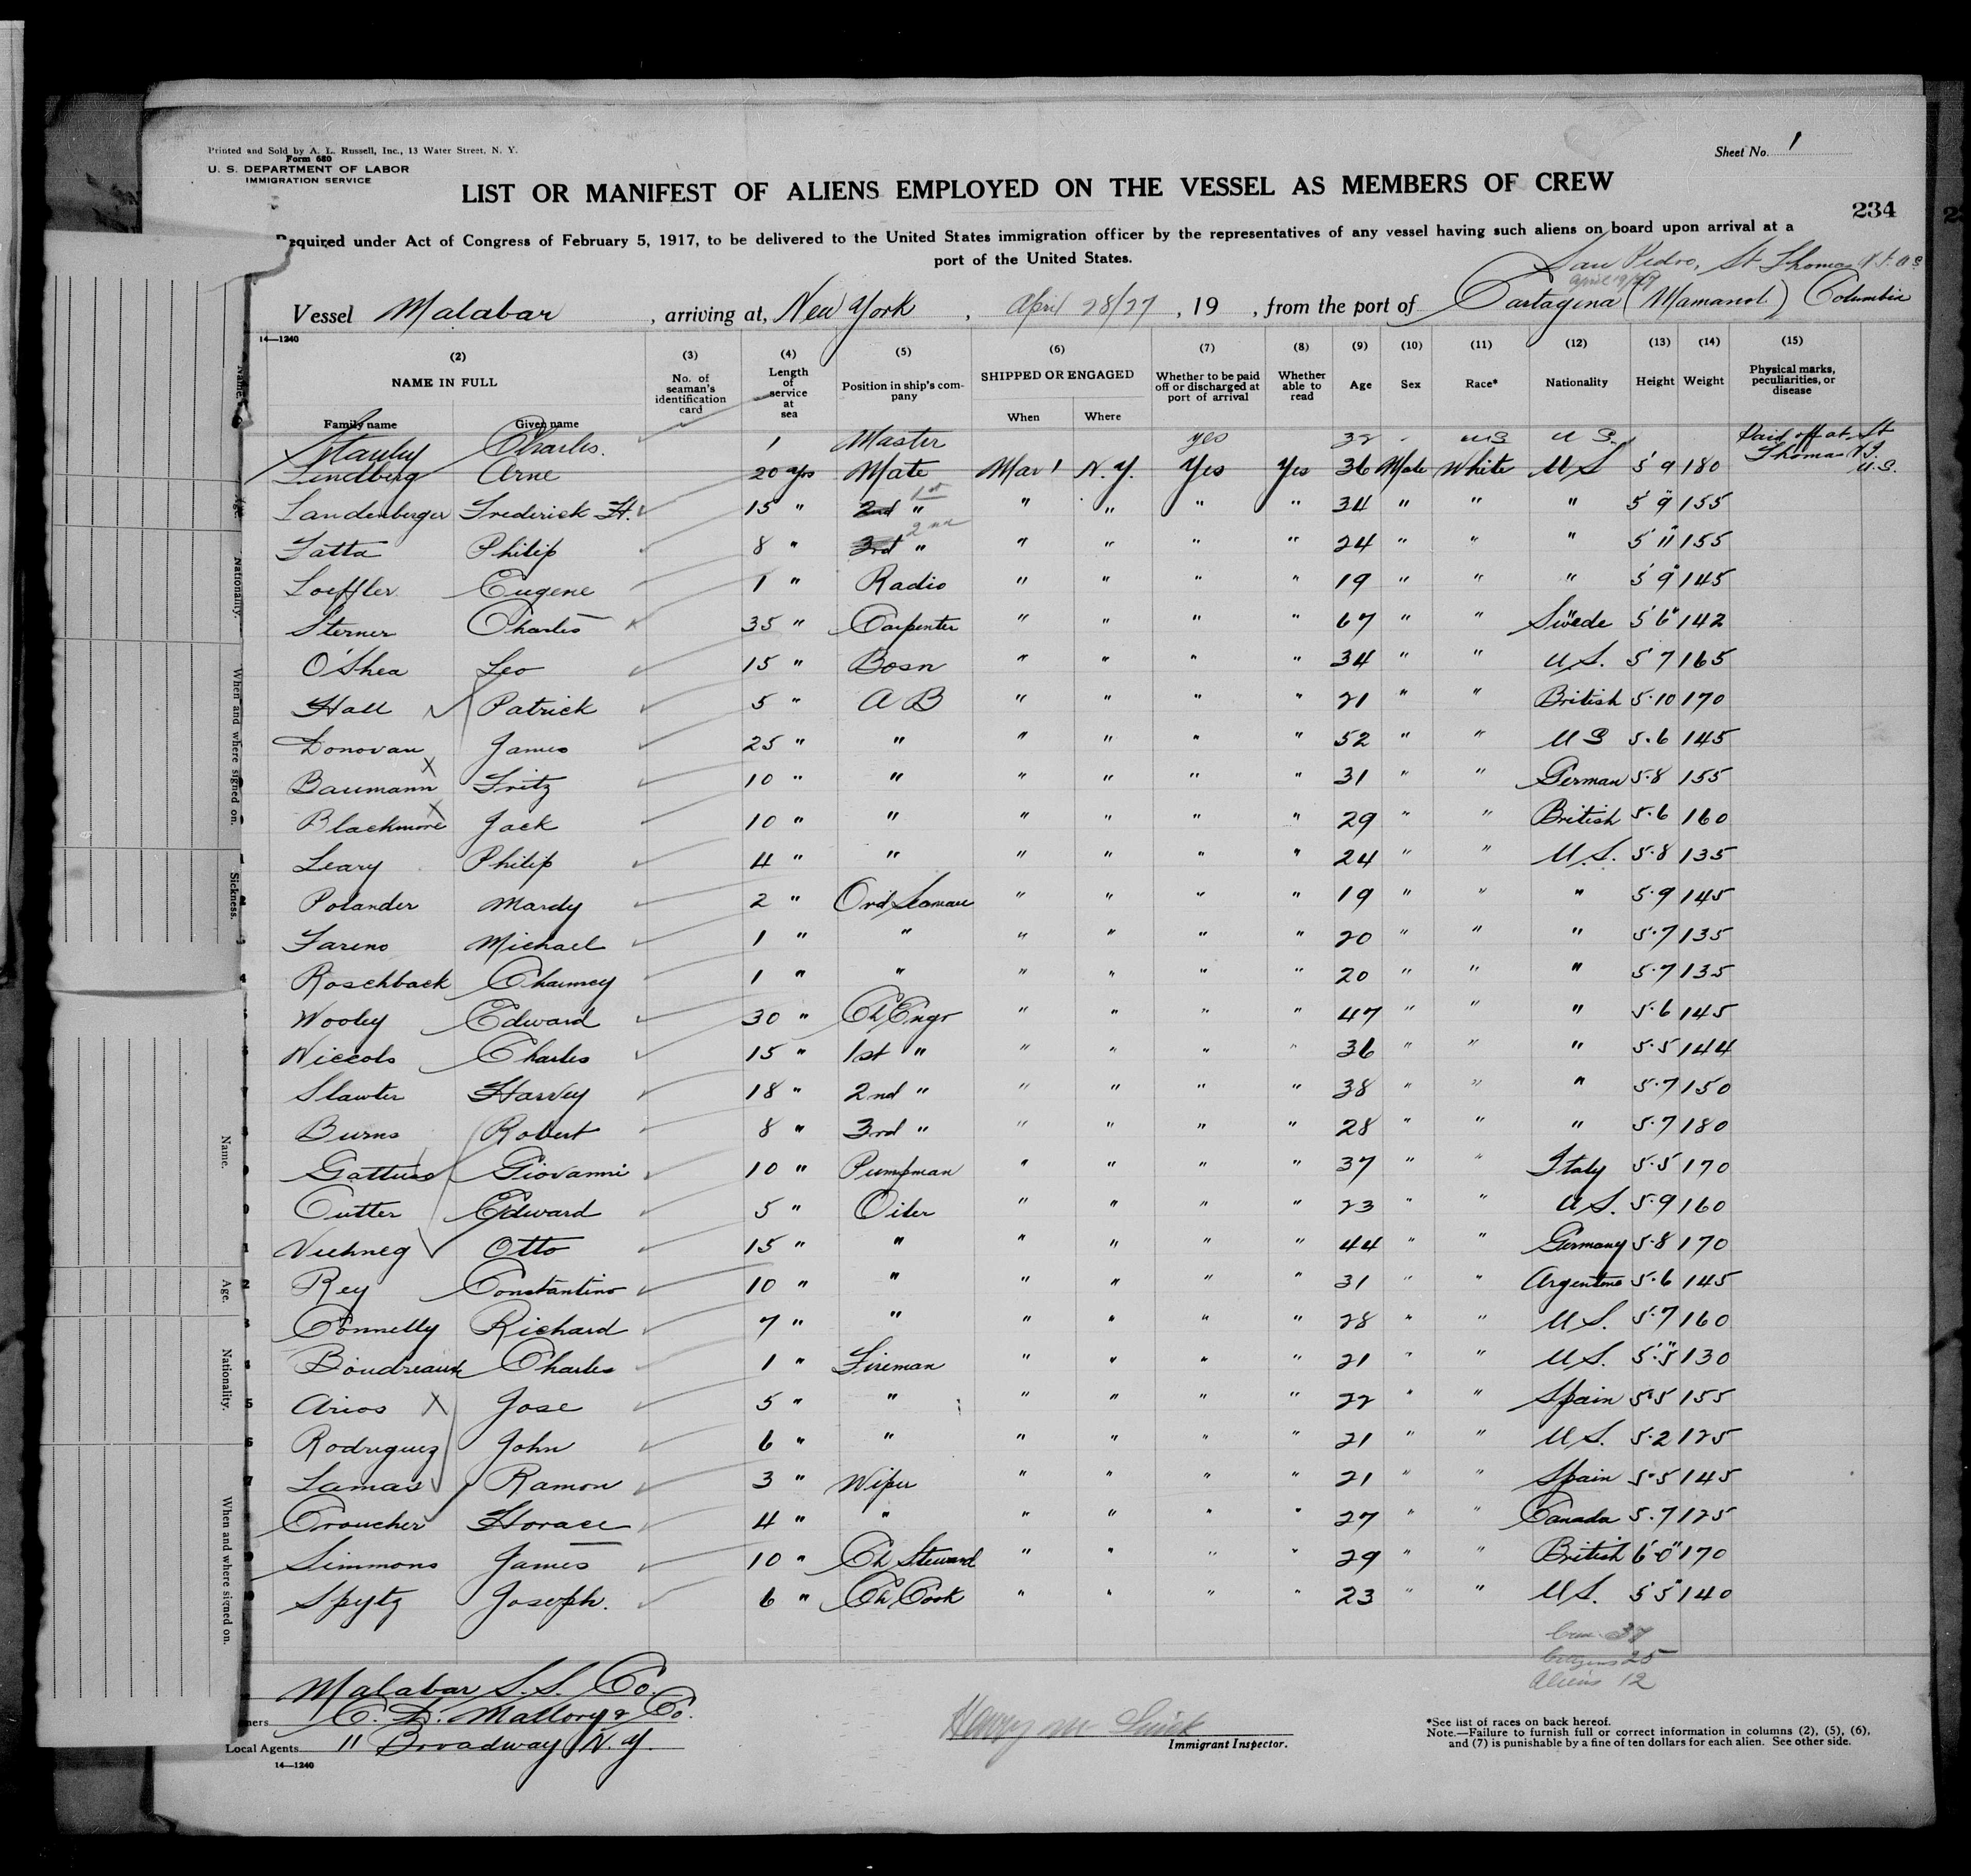 Printed and Sold by A. L. Russell, Inc., 13 Water Street, N. Y.
Form 680
U. S. DEPARTMENT OF LABOR
IMMIGRATION SERVICE
Sheet No. 1
LIST OR MANIFEST OF ALIENS EMPLOYED ON THE VESSEL AS MEMBERS OF CREW
234
Required under Act of Congress of February 5, 1917, to be delivered to the United States immigration officer by the representatives of any vessel having such aliens on board upon arrival at a
port of the United States.
San Pedro, St Thomas V.I. U.S.
April 19/27
Vessel Malabar, arriving at, New York, April 28/27, 19 , from the port of Cartagena (Mamanol) Columbia
14—1240
(2) (3) (4) (5) (6) (7) (8) (9) (10) (11) (12) (13) (14) (15)
NAME IN FULL
Family name Given name
No. of seaman's identification card
Length of service at sea
Position in ship's company
SHIPPED OR ENGAGED
When Where
Whether to be paid off or discharged at port of arrival
Whether able to read
Age Sex Race* Nationality Height Weight
Physical marks, peculiarities, or disease
Stanley Charles. 1 Master yes 32 US U S. Paid off at St Thomas V.I. U.S.
Lindberg Arne 20 yrs Mate Mar 1 N.Y. Yes Yes 36 Male White U S 5 9 180
Landenberger Frederick H. 15 " 2nd 1st " " " " " 34 " " " 5' 9" 155
Tatta Philip 8 " 3rd 2nd " " " " " 24 " " " 5' 11" 155
Loeffler Eugene 1 " Radio " " " " 19 " " " 5' 9" 145
Sterner Charles 35 " Carpenter " " " " 67 " " Swede 5' 6" 142
O'Shea Leo 15 " Bosn " " " " 34 " " U.S. 5' 7 165
Hall Patrick 5 " A B " " " " 21 " " British 5.10 170
Donovan James 25 " " " " " " 52 " " U S 5.6 145
Baumann X Fritz 10 " " " " " " 31 " " German 5.8 155
Blackmore X Jack 10 " " " " " " 29 " " British 5.6 160
Leary Philip 4 " " " " " " 24 " " U.S. 5.8 135
Polander Mardy 2 " Ord Seaman " " " " 19 " " " 5.9 145
Fareno Michael 1 " " " " " " 20 " " " 5.7 135
Roschback Chauncy 1 " " " " " " 20 " " " 5.7 135
Wooley Edward 30 " Ch Engr " " " " 47 " " " 5.6 145
Niccols Charles 15 " 1st " " " " " 36 " " " 5.5 144
Slawter Harvey 18 " 2nd " " " " " 38 " " " 5.7 150
Burns Robert 8 " 3rd " " " " " 28 " " " 5.7 180
Gattuso Giovanni 10 " Pumpman " " " " 37 " " Italy 5.5 170
Cutter Edward 5 " Oiler " " " " 23 " " U.S. 5.9 160
Otto 15 " " " " " " 44 " " Germany 5.8 170
Rey Constantino 10 " " " " " " 31 " " Argentine 5.6 145
Connelly Richard 7 " " " " " " 28 " " U.S. 5.7 160
Boudreaux Charles 1 " Fireman " " " " 21 " " U.S. 5'.5" 130
Arios X Jose 5 " " " " " " 22 " " Spain 5.5 155
Rodriguez John 6 " " " " " " 21 " " U.S. 5.2 125
Lamas Ramon 3 " Wiper " " " " 21 " " Spain 5.5 145
Croucher Horace 4 " " " " " " 27 " " Canada 5.7 125
Simmons James 10 " Ch Steward " " " " 29 " " British 6'0" 170
Spytz Joseph. 6 " Ch Cook " " " " 23 " " U.S. 5' 5" 140
Crew 37
Citizens 25
Aliens 12
Malabar S.S. Co.
C. D. Mallory & Co.
Local Agents 11 Broadway N.Y.
14—1240
Immigrant Inspector.
*See list of races on back hereof.
Note.—Failure to furnish full or correct information in columns (2), (5), (6),
and (7) is punishable by a fine of ten dollars for each alien. See other side.
Age.
Nationality.
When and where signed on.
Sickness.
Name.
Age.
Nationality.
When and where signed on.